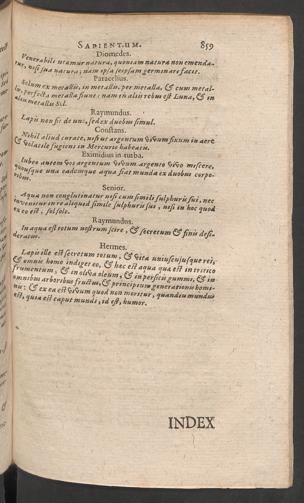 SAPIENTUM. 859
Diomedes.
Venerabili utamur natura, quoniam natura non emenda-
tur, nisi sua natura; nam ipsa seipsam germinare facit.
Paracelsus.
Solum ex metallis, in metallis, per metalla, & cum metal-
lis, perfecta metalla fiunt: nam in aliis rebus est Luna, & in
aliis metallis Sol.
Raymundus.
Lapis non fit de uni, sed ex duobus simul.
Constans.
Nehil aliud curate, nisi ut argentum vivum fixum in aere
& volatile fugiens in Mercurio habeatis.
Eximidius in turba.
Iubeo autem vos argentum vivum argento vivo miscere,
quousque una eademque aqua fiat munda ex duobus corpo-
Senior.
Aqua non conglutinatur nisi cum simili sulphuris sui, nec
invenitur in re aliqua simile sulphuris sui, nisi in hoc quod
ex eo est, sol sole.
Raymundus.
In aqua est totum nostrum scire, & secretum & finis desi-
deratus.
Hermes.
Lapis ille est secretum totum, & vita uniuscujusque rei,
& omnis homo indiget eo, & hec est aqua quæ est in tritico
frumentum, & in oliva oleum, & in persicis gummi, & in
omnibus arboribus fructus, & principium generationis homi-
nis: & ex ea est vivum quod non moritur, quamdiu mundus
est, quia est caput mundi, id est, humor.
INDEX